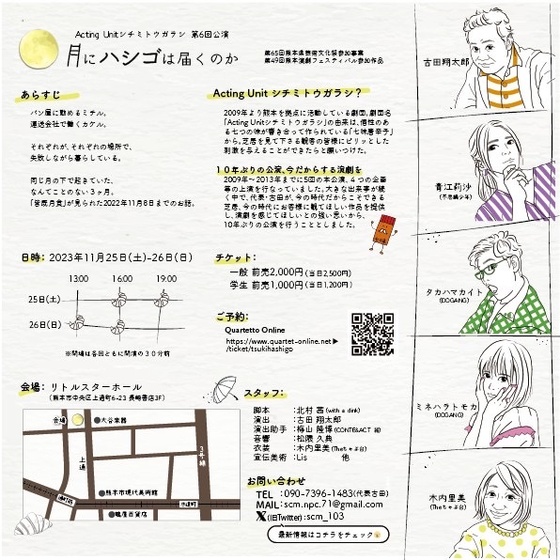 Acting Unitシチミトウガラシ 第6回公演
月にハシゴは届くのか
第65回熊本県芸術文化祭参加事業
第49回熊本演劇フェスティバル参加作品
あらすじ
パン屋に勤めるミチル。
運送会社で働くカケル。
それぞれが、それぞれの場所で、
失敗しながら暮らしている。
同じ月の下で起きていた、
なんてことのない3ヶ月。
「皆既月食」が見られた2022年11月8日までのお話。
Acting Unit シチミトウガラシ？
2009年より熊本を拠点に活動している劇団。劇団名
「Acting Unitシチミトウガラシ」の由来は、個性のあ
る七つの味が響き合って作られている「七味唐辛子」
から。芝居を見て下さる観客の皆様にピリッとした
刺激を与えることができたらと願いつけた。
10年ぶりの公演、今だからする演劇を
2009年～2013年までに5回の本公演、4つの企画
等の上演を行なっていました。大きな出来事が続
く中で、代表・古田が、今の時代だからこそできる
芝居、今の時代にお客様に観てほしい作品を提供
し、演劇を感じてほしいとの強い思いから、
10年ぶりの公演を行うこととしました。
日時：2023年11月25日(土)-26日(日)
13:00 16:00 19:00
25日(土)
26日(日)
※開場は各回ともに開演の30分前
チケット：
一般 前売2,000円(当日2,500円)
学生 前売1,000円(当日1,200円)
ご予約：
Quartetto Online
https://www.quartet-online.net
/ticket/tsukihashigo
会場：リトルスターホール
(熊本市中央区上通町6-23 長崎書店3F)
会場
大谷楽器
上通
3号線
熊本市現代美術館
通町筋
市電通
鶴屋百貨店
スタッフ：
脚本 ：北村 茜(with a dink)
演出 ：古田 翔太郎
演出助手：桝山 隆博(CONTE&ACT 緒)
音響 ：松隈 久典
衣装 ：木内里美(Theちゃぶ台)
宣伝美術：Lis 他
お問い合わせ
TEL ：090-7396-1483(代表古田)
MAIL：scm.npc.71@gmail.com
X(旧Twitter)：scm_103
最新情報はコチラをチェック
古田翔太郎
青江莉沙
(不思議少年)
タカハマカイト
(DOGANG)
ミネハラトモカ
(DOGANG)
木内里美
(Theちゃぶ台)